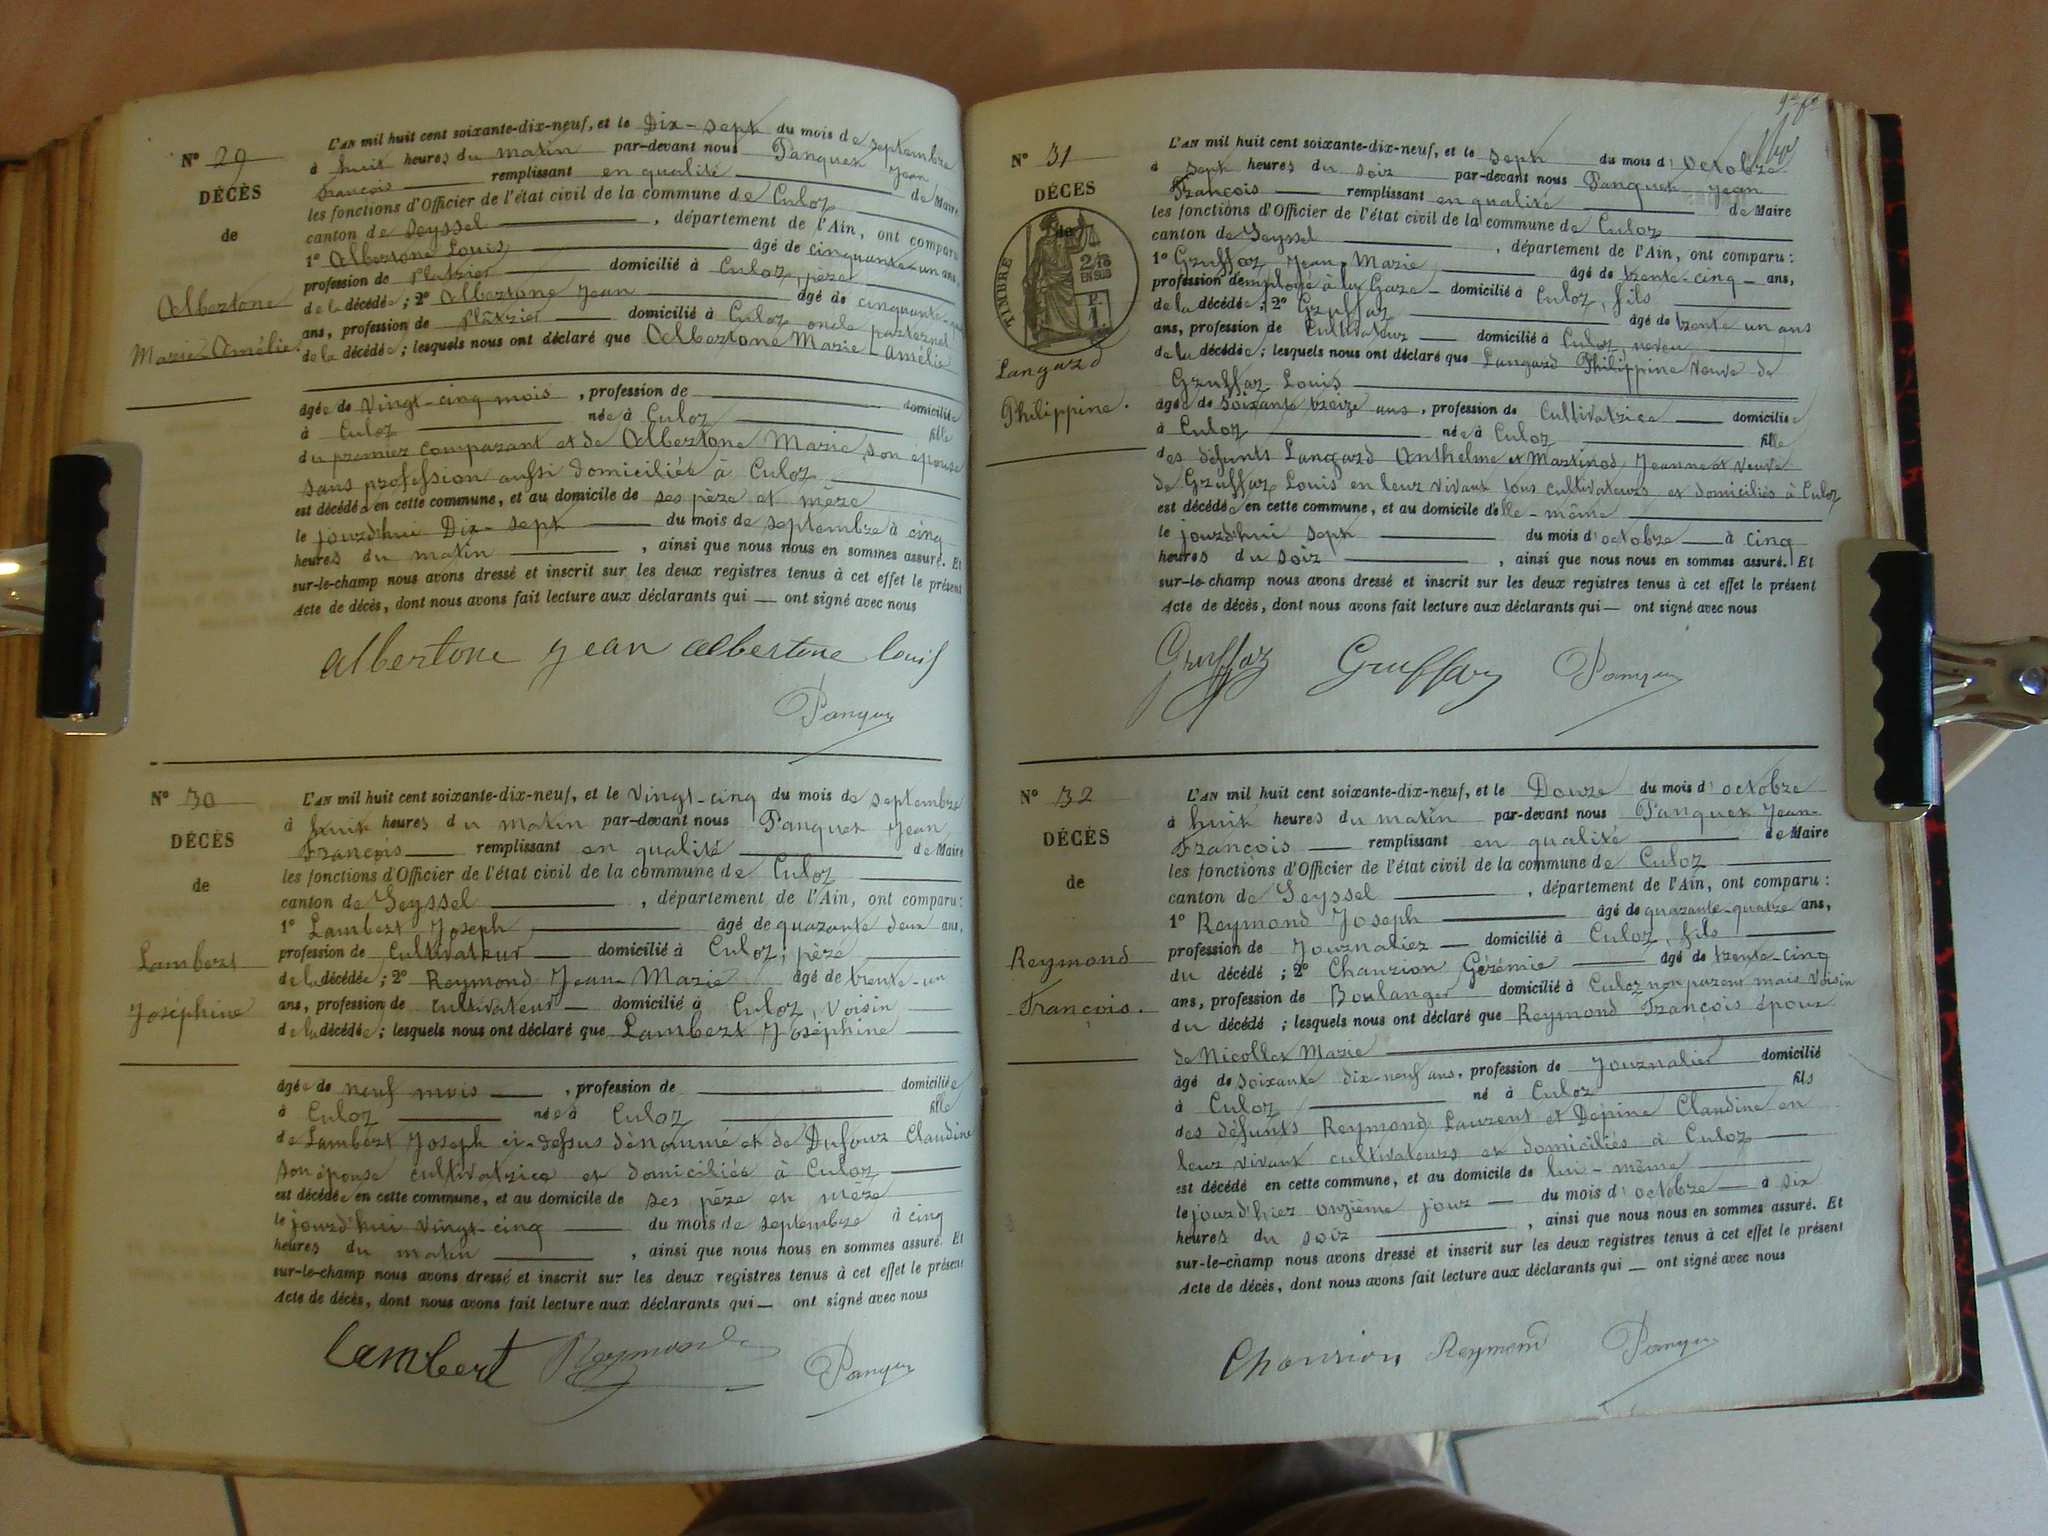 N° 29
DÉCÈS
de
Albertone
Marie-Amélie.
L'AN mil huit cent soixante-dix-neuf, et le Dix-sept du mois de septembre
à huit heures du matin par-devant nous Panquet Jean
François remplissant en qualité de Maire
les fonctions d'Officier de l'état civil de la commune de Culoz
canton de Seyssel , département de l'Ain, ont comparu
1° Albertone Louis âgé de cinquante-un ans,
profession de Platrier domicilié à Culoz, père
de la décédée ; 2° Albertone Jean âgé de cinquante
ans, profession de Plâtrier domicilié à Culoz oncle paternel
de la décédée ; lesquels nous ont déclaré que Albertone Marie-Amélie
âgée de vingt-cinq mois , profession de domiciliée
à Culoz née à Culoz fille
du premier comparant et de Albertone Marie, son épouse
sans profession aussi domiciliés à Culoz
est décédée en cette commune, et au domicile de ses père et mère
le jourd'hui Dix-sept du mois de septembre à cinq
heures du matin , ainsi que nous nous en sommes assuré. Et
sur-le-champ nous avons dressé et inscrit sur les deux registres tenus à cet effet le présent
Acte de décès, dont nous avons fait lecture aux déclarants qui — ont signé avec nous
albertone jean albertone louis
Panquet
N° 30
DÉCÈS
de
Lambert
Joséphine
L'AN mil huit cent soixante-dix-neuf, et le vingt-cinq du mois de septembre
à huit heures du matin par-devant nous Panquet Jean
François remplissant en qualité de Maire
les fonctions d'Officier de l'état civil de la commune de Culoz
canton de Seyssel , département de l'Ain, ont comparu :
1° Lambert Joseph âgé de quarante deux ans,
profession de cultivateur domicilié à Culoz, père
de la décédée ; 2° Reymond Jean-Marie âgé de trente-un
ans, profession de cultivateur domicilié à Culoz, voisin
de la décédée ; lesquels nous ont déclaré que Lambert Joséphine
âgée de neuf mois , profession de domiciliée
à Culoz née à Culoz fille
de Lambert Joseph ci-dessus dénommé et de Dufour Claudine
son épouse cultivatrice et domiciliés à Culoz
est décédée en cette commune, et au domicile de ses père et mère
le jourd'hui vingt-cinq du mois de septembre à cinq
heures du matin , ainsi que nous nous en sommes assuré. Et
sur-le-champ nous avons dressé et inscrit sur les deux registres tenus à cet effet le présent
Acte de décès, dont nous avons fait lecture aux déclarants qui — ont signé avec nous
lambert Reymond
Panquet
N° 31
DÉCÈS
de
TIMBRE
2/10
EN SUS
Langard
Philippine.
L'AN mil huit cent soixante-dix-neuf, et le sept du mois d'octobre
à sept heures du soir par-devant nous Panquet Jean
François remplissant en qualité de Maire
les fonctions d'Officier de l'état civil de la commune de Culoz
canton de Seyssel , département de l'Ain, ont comparu :
1° Gruffaz Jean-Marie âgé de trente-cinq ans,
profession d'employé à la Gare domicilié à Culoz, fils
de la décédée ; 2° Gruffaz âgé de trente un ans
ans, profession de cultivateur domicilié à Culoz, neveu
de la décédée ; lesquels nous ont déclaré que Langard Philippine veuve de
Gruffaz Louis
âgée de soixante treize ans , profession de cultivatrice domiciliée
à Culoz née à Culoz fille
des défunts Langard Anthelme et Martinod Jeanne et veuve
de Gruffaz Louis en leur vivant tous cultivateurs et domiciliés à Culoz
est décédée en cette commune, et au domicile d'elle-même
le jourd'hui sept du mois d'octobre à cinq
heures du soir , ainsi que nous nous en sommes assuré. Et
sur-le-champ nous avons dressé et inscrit sur les deux registres tenus à cet effet le présent
Acte de décès, dont nous avons fait lecture aux déclarants qui — ont signé avec nous
Gruffaz Gruffaz Panquet
N° 32
DÉCÈS
de
Reymond
François.
L'AN mil huit cent soixante-dix-neuf, et le Douze du mois d'octobre
à huit heures du matin par-devant nous Panquet Jean-
François remplissant en qualité de Maire
les fonctions d'Officier de l'état civil de la commune de Culoz
canton de Seyssel , département de l'Ain, ont comparu :
1° Reymond Joseph âgé de quarante-quatre ans,
profession de Journalier domicilié à Culoz, fils
du décédé ; 2° Chanzion Gérémie âgé de trente-cinq
ans, profession de Boulanger domicilié à Culoz non parent mais voisin
du décédé ; lesquels nous ont déclaré que Reymond François époux
de Nicollet Marie
âgé de soixante dix-neuf ans, profession de Journalier domicilié
à Culoz né à Culoz fils
des défunts Reymond Laurent et Dépine Claudine en
leur vivant cultivateurs et domiciliés à Culoz
est décédé en cette commune, et au domicile de lui-même
le jourd'hier onzième jour du mois d'octobre à six
heures du soir , ainsi que nous nous en sommes assuré. Et
sur-le-champ nous avons dressé et inscrit sur les deux registres tenus à cet effet le présent
Acte de décès, dont nous avons fait lecture aux déclarants qui — ont signé avec nous
Chanrion Reymond Panquet